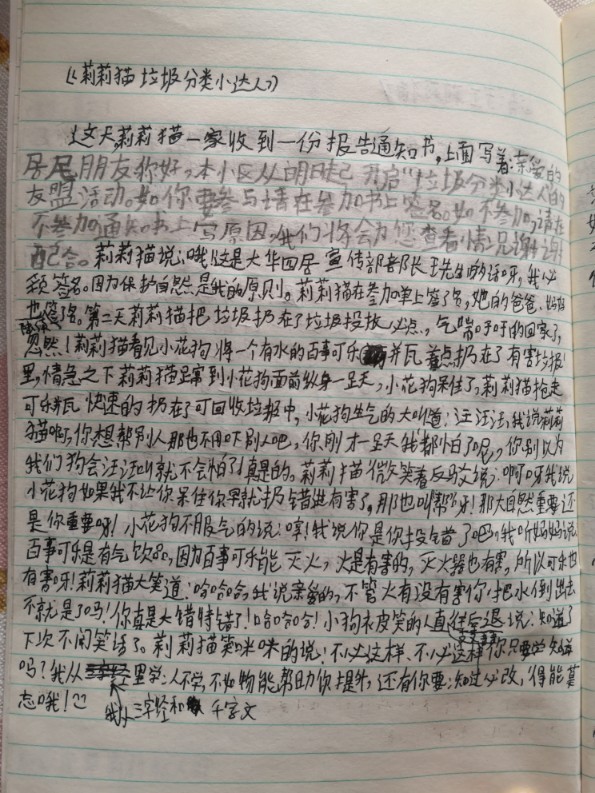 《莉莉猫垃圾分类小达人》
这天,莉莉猫一家收到一份报告通知书,上面写着:亲爱的
居民朋友你好,本小区从明日起开启"垃圾分类小达人"的
友盟活动。如你要参与请在参加书上签名。如不参加,请在
不参加通知书上写原因,我们将会为您查看情况谢谢
配合。莉莉猫说:哦!这是大华四居宣传部部长王先生的话呀,我必
须签名。因为保护自然是我的原则。莉莉猫在参加单上签了名,她的爸爸、妈妈
也签了名。第二天莉莉猫把垃圾扔在了垃圾投放点,气喘吁吁的回家了,
忽然!莉莉猫看见小花狗将一个有水的百事可乐瓶差点扔在了有害垃圾
里,情急之下莉莉猫蹿到小花狗面前纵身一跃,小花狗呆住了,莉莉猫抢走
可乐瓶快速的扔在了可回收垃圾中,小花狗生气的大叫道:汪汪汪,我说莉莉
猫啊,你想帮别人那也不用吓别人吧,你刚才一跃我都怕了呢,你别以为
我们狗会汪汪叫就不会怕了!真是的。莉莉猫微笑着反驳说:啊呀我说
小花狗如果我不让你呆住你早就扔错进有害了,那也叫帮呀!那大自然重要还
是你重要呀!小花狗不服气的说:哼!我说你是你投错了吧,我听妈妈说
百事可乐是有气饮品,因为百事可乐能灭火,火是有害的,灭火器也有害,所以可乐也
有害呀!莉莉猫大笑道:哈哈哈,我说亲爱的,不管火有没有害你把水倒出去
不就是了吗!你真是大错特错了!哈哈哈!小狗被笑的人直往后退说:知道了
下次不闹笑话了。莉莉猫笑咪咪的说:不必这样、不必这样你只要学知详
吗?我从里学:人不学,不如物能帮助你提升,还有你要:知过必改,得能莫
忘哦!
我从三字经和千字文